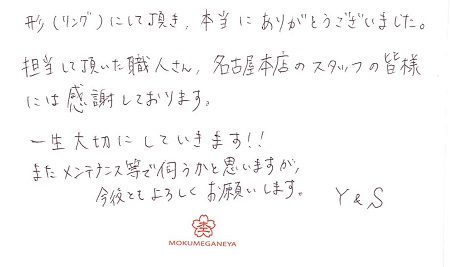 形(リング)にして頂き、本当にありがとうございました。
担当して頂いた職人さん、名古屋本店のスタッフの皆様
には感謝しております。
一生大切にしていきます!!
またメンテナンス等で伺うかと思いますが、
今後ともよろしくお願いします。
Y & S
杢
MOKUMEGANEYA